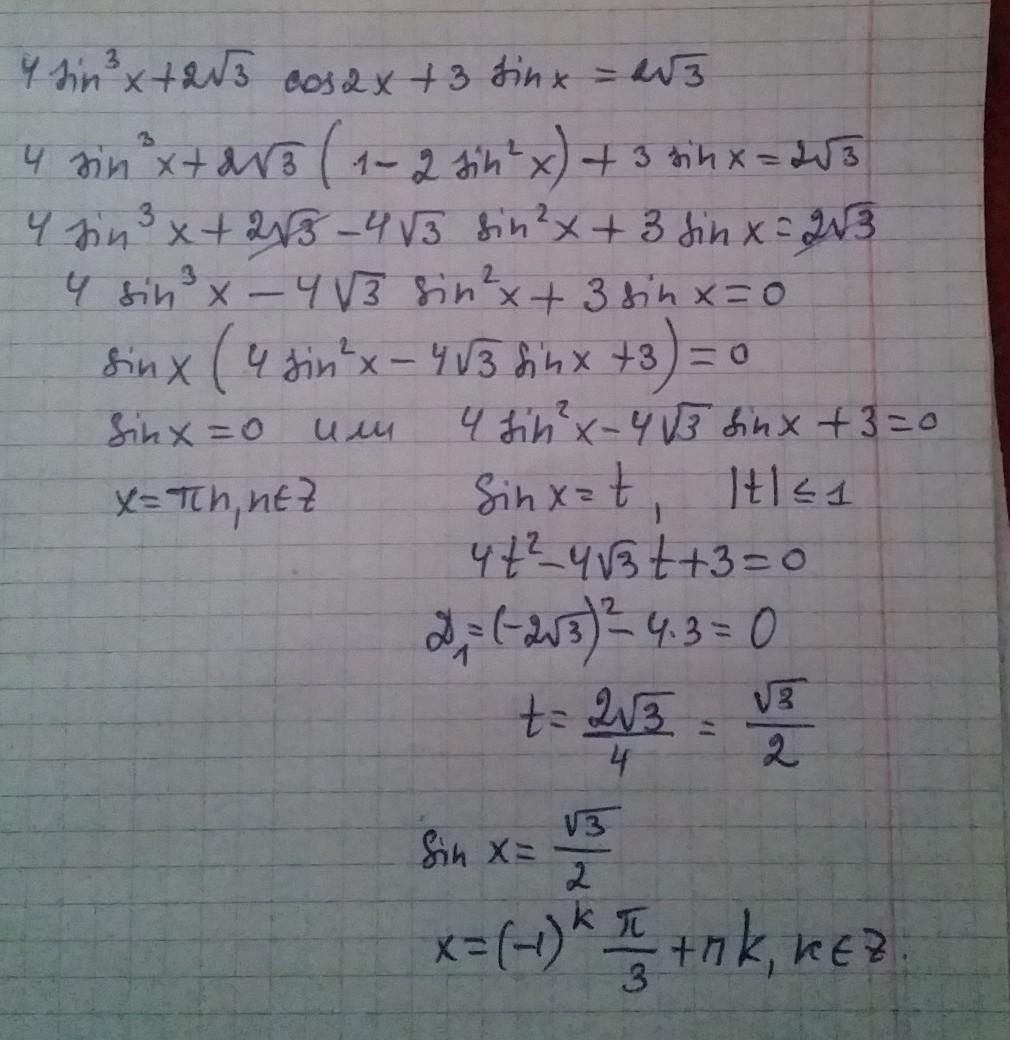 4 sin³x + 2√3 cos2x + 3 sinx = 2√3
4 sin³x + 2√3 (1 - 2 sin²x) + 3 sinx = 2√3
4 sin³x + 2√3 - 4√3 sin²x + 3 sinx = 2√3
4 sin³x - 4√3 sin²x + 3 sinx = 0
sinx (4 sin²x - 4√3 sinx + 3) = 0
sinx = 0 или 4 sin²x - 4√3 sinx + 3 = 0
x = πn, n∈Z sinx = t, |t| ≤ 1
4t² - 4√3 t + 3 = 0
D₁ = (-2√3)² - 4·3 = 0
t = 2√3/4 = √3/2
sin x = √3/2
x = (-1)^k π/3 + πk, k∈Z.